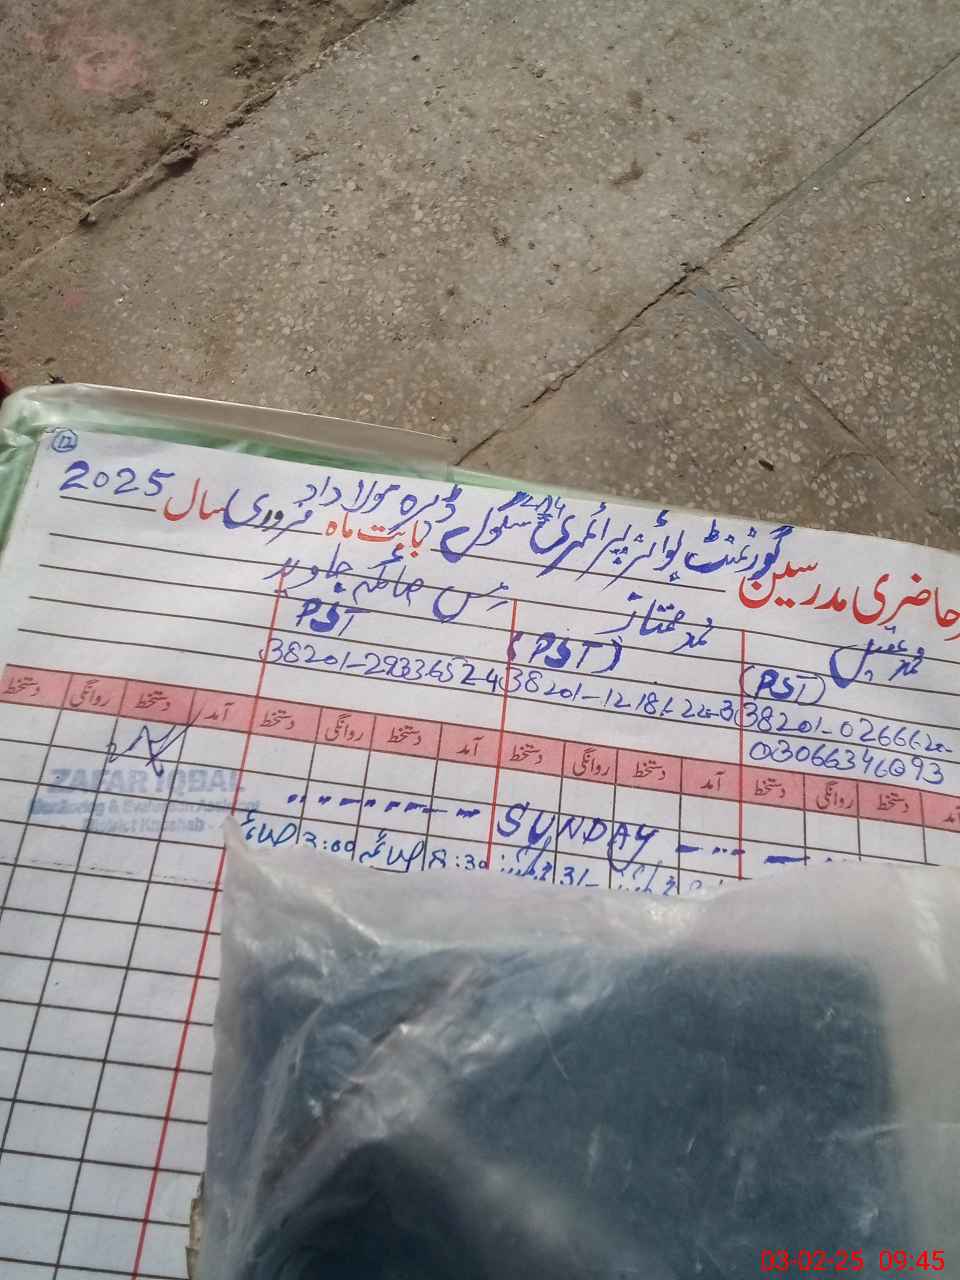 12
حاضری مدرسین گورنمنٹ بوائز پرائمری سکول ڈیرہ مولا داد بابت ماہ فروری سال 2025
محمد عقیل محمد ممتاز مس صائمہ جاوید
(PST) (PST) PST
38201-0266620- 38201-1218622-3 38201-2933652-4
03066346093
آمد دستخط روانگی دستخط آمد دستخط روانگی دستخط آمد دستخط روانگی دستخط آمد دستخط روانگی دستخط
ZAFAR IQBAL
Monitoring & Evaluation Assistant
District Khushab
SUNDAY
8:30 صائمہ 3:00 صائمہ
03-02-25 09:45